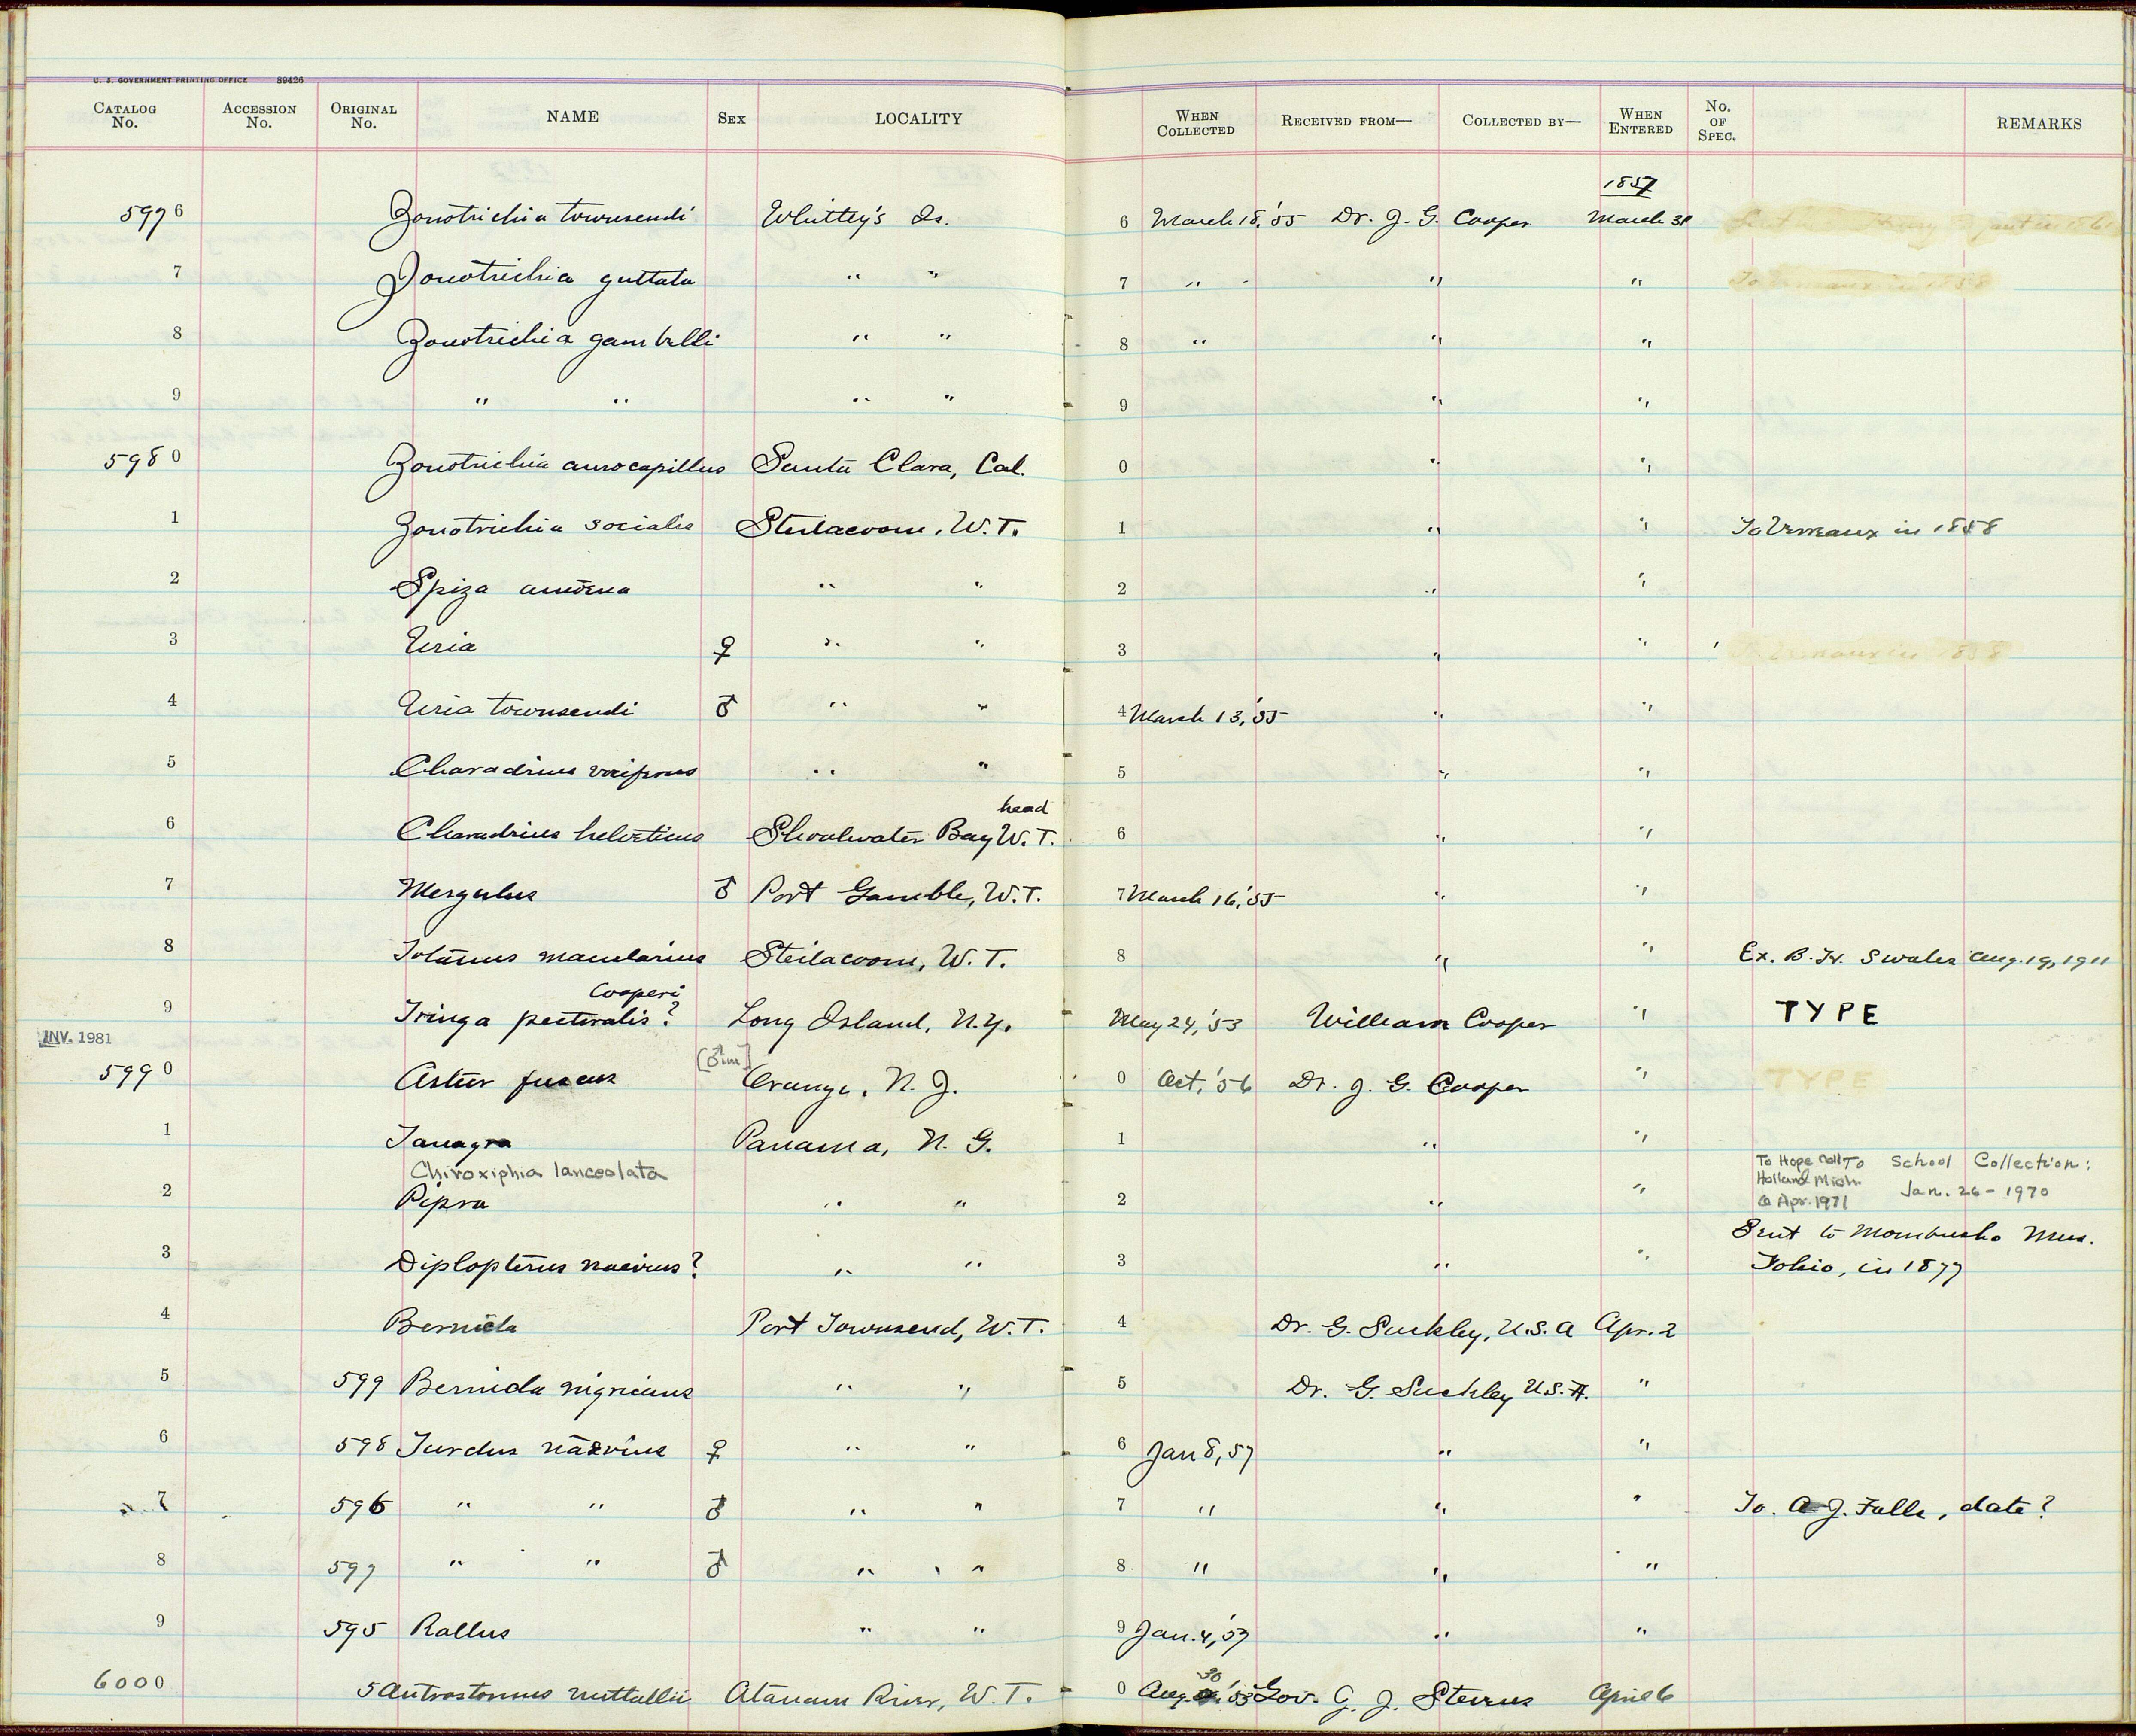 U. S. GOVERNMENT PRINTING OFFICE 89426
CATALOG No. ACCESSION No. ORIGINAL No. NAME SEX LOCALITY WHEN COLLECTED RECEIVED FROM— COLLECTED BY— WHEN ENTERED No. OF SPEC. REMARKS
1857
5976 Zonotrichia townsendi Whitley's Is. 6 March 18,'55 Dr. J. G. Cooper March 31
7 Zonotrichia guttata " " 7 " " "
8 Zonotrichia gambelli " " 8 " " "
9 " " " " 9 " "
5980 Zonotrichia aurocapillus Santa Clara, Cal. 0 " "
1 Zonotrichia socialis Steilacoom, W.T. 1 " " To Verreaux in 1858
2 Spiza amoena " " 2 " "
3 Uria ♀ " " 3 " " To Verreaux in 1858
4 Uria townsendi ♂ " " 4 March 13,'55 " "
5 Charadrius vociferus " " 5 " "
head
6 Charadrius helveticus Shoalwater Bay W.T. 6 " "
7 Mergulus ♂ Port Gamble, W.T. 7 March 16,'55 " "
8 Totanus macularius Steilacoom, W.T. 8 " " Ex. B. H. Swales Aug. 19, 1911
Cooperi
9 Tringa pectoralis? Long Island, N.Y. May 24,'53 William Cooper " TYPE
INV. 1981
[♂im]
5990 Astur fuscus Orange, N.J. 0 Oct,'56 Dr. J. G. Cooper " TYPE
1 Tanagra Panama, N.G. 1 " "
Chiroxiphia lanceolata
To Hope Coll To School Collection:
Holland Mich Jan. 26-1970
Apr. 1971
2 Pipra " " 2 " "
Sent to Mombusho Mus.
3 Diplopterus naevius? " " 3 " " Tokio, in 1877
4 Bernicla Port Townsend, W.T. 4 Dr. G. Suckley, U.S.A Apr. 2
5 599 Bernicla nigricans " " 5 Dr. G. Suckley U.S.A. "
6 598 Turdus naevius ♀ " " 6 Jan 8, 57 " "
7 596 " " ♂ " " 7 " " " To. A J. Falls, date?
8 597 " " ♂ " " 8 " " "
9 595 Rallus " " 9 Jan. 4,'57 " "
30
6000 5 Antrostomus nuttallii Atanam River, W.T. 0 Aug. '53 Gov. J. J. Stevens April 6